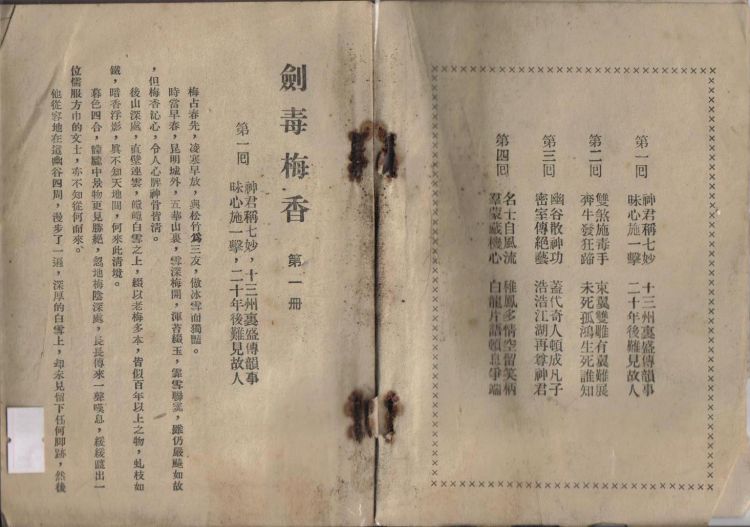 第一回
神君稱七妙 十三州裏盛傳韻事
昧心施一擊 二十年後難見故人
第二回
雙煞施毒手 東翼雙雕有翼難展
奔牛發狂蹄 未死孤鴻生死誰知
第三回
幽谷散神功 蓋代奇人頓成凡子
密室傳絕藝 浩浩江湖再尊神君
第四回
名士自風流 稚鳳多情空留笑柄
羣蒙藏機心 白龍片語頓息爭端
劍毒梅香 第一册
第一回 神君稱七妙，十三州裏盛傳韻事
昧心施一擊，二十年後難見故人
梅占春先，凌寒早放，與松竹爲三友，傲冰雪而獨豔。
時當早春，昆明城外，五華山裏，雪深梅開，渾苔綴玉，霏雪聯霙，雖仍嚴飇如故
，但梅香沁心，令人心脾神骨皆清。
後山深處，直壁連雲，皚皚白雪之上，綴以老梅多本，皆似百年以上之物，虬枝如
鐵，暗香浮影，眞不知天地間，何來此淸境。
暮色四合，朦朧中景物更見勝絕，忽地梅陰深處，長長傳來一聲嘆息，緩緩踱出一
位儒服方巾的文士，亦不知從何而來。
他從容地在這幽谷四周，漫步了一遍，深厚的白雪上，却未見留下任何脚跡，然後